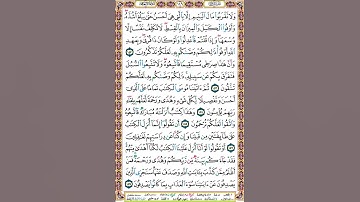 وَلَا تَقْرَبُوا۟ مَالَ ٱلْيَتِيمِ إِلَّا بِٱلَّتِى هِىَ أَحْسَنُ حَتَّىٰ يَبْلُغَ أَشُدَّهُۥ
وَأَوْفُوا۟ ٱلْكَيْلَ وَٱلْمِيزَانَ بِٱلْقِسْطِ لَا نُكَلِّفُ نَفْسًا إِلَّا
وُسْعَهَا وَإِذَا قُلْتُمْ فَٱعْدِلُوا۟ وَلَوْ كَانَ ذَا قُرْبَىٰ وَبِعَهْدِ
ٱللَّهِ أَوْفُوا۟ ذَٰلِكُمْ وَصَّىٰكُم بِهِۦ لَعَلَّكُمْ تَذَكَّرُونَ
وَأَنَّ هَٰذَا صِرَٰطِى مُسْتَقِيمًا فَٱتَّبِعُوهُ وَلَا تَتَّبِعُوا۟ ٱلسُّبُلَ
فَتَفَرَّقَ بِكُمْ عَن سَبِيلِهِۦ ذَٰلِكُمْ وَصَّىٰكُم بِهِۦ لَعَلَّكُمْ
تَتَّقُونَ ثُمَّ ءَاتَيْنَا مُوسَى ٱلْكِتَٰبَ تَمَامًا عَلَى ٱلَّذِىٓ
أَحْسَنَ وَتَفْصِيلًا لِّكُلِّ شَىْءٍ وَهُدًى وَرَحْمَةً لَّعَلَّهُم بِلِقَآءِ
رَبِّهِمْ يُؤْمِنُونَ وَهَٰذَا كِتَٰبٌ أَنزَلْنَٰهُ مُبَارَكٌ فَٱتَّبِعُوهُ
وَٱتَّقُوا۟ لَعَلَّكُمْ تُرْحَمُونَ أَن تَقُولُوٓا۟ إِنَّمَآ أُنزِلَ ٱلْكِتَٰبُ
عَلَىٰ طَآئِفَتَيْنِ مِن قَبْلِنَا وَإِن كُنَّا عَن دِرَاسَتِهِمْ لَغَٰفِلِينَ
أَوْ تَقُولُوا۟ لَوْ أَنَّآ أُنزِلَ عَلَيْنَا ٱلْكِتَٰبُ لَكُنَّآ أَهْدَىٰ مِنْهُمْ
فَقَدْ جَآءَكُم بَيِّنَةٌ مِّن رَّبِّكُمْ وَهُدًى وَرَحْمَةٌ فَمَنْ
أَظْلَمُ مِمَّن كَذَّبَ بِـَٔايَٰتِ ٱللَّهِ وَصَدَفَ عَنْهَا سَنَجْزِى ٱلَّذِينَ
يَصْدِفُونَ عَنْ ءَايَٰتِنَا سُوٓءَ ٱلْعَذَابِ بِمَا كَانُوا۟ يَصْدِفُونَ